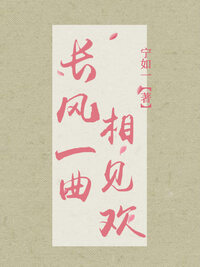 长风一曲
相见欢
宁如一【著】